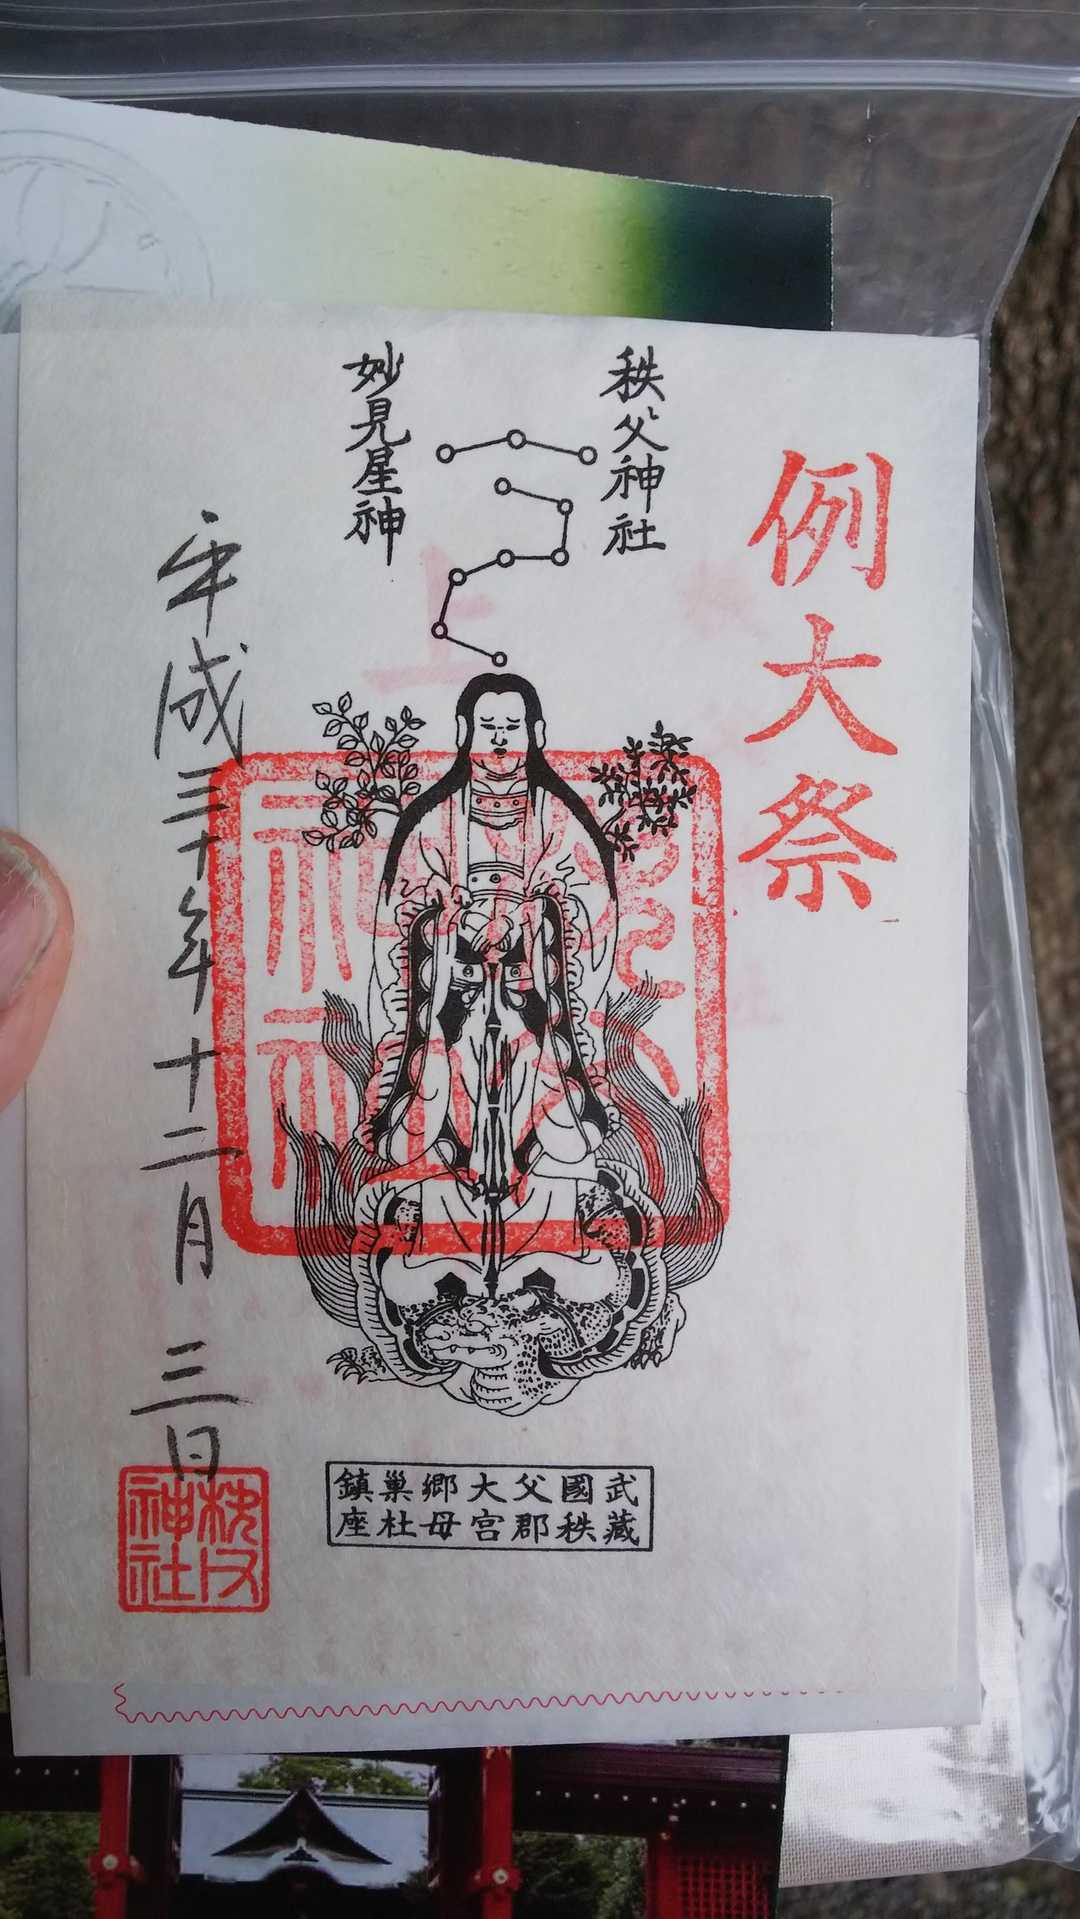 例大祭
秩父神社
妙見星神
平成三十年十二月三日
秩父神社
秩父神社
武藏
國秩
父郡
大宮
郷母
巢杜
鎮座